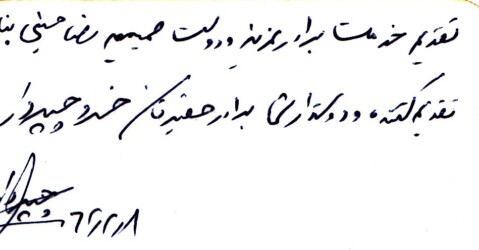 تقدیم خدمت برادر عزیز و دوست صمیمی رضا حسینی
تقدیم کننده و دوستدار شما برادر حقیرتان خسرو چیردار
۶۲/۲/۸